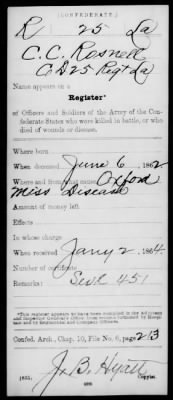 (CONFEDERATE.)
R 25 La
C. C. Rosnell
Co D 25 Regt La
Name appears in a
Register*
of Officers and Soldiers of the Army of the Confederate States who were killed in battle, or who died of wounds or disease.
Where born
When deceased June 6, 1862
Where and from what cause Oxford
Miss Disease
Amount of money left
Effects
In whose charge
When received Jany 2, 1864.
Number of certificate
Remarks: 451
Confed. Arch., Chap. 10, File No. 6, page 213
J. B. Hyatt
Copyist.